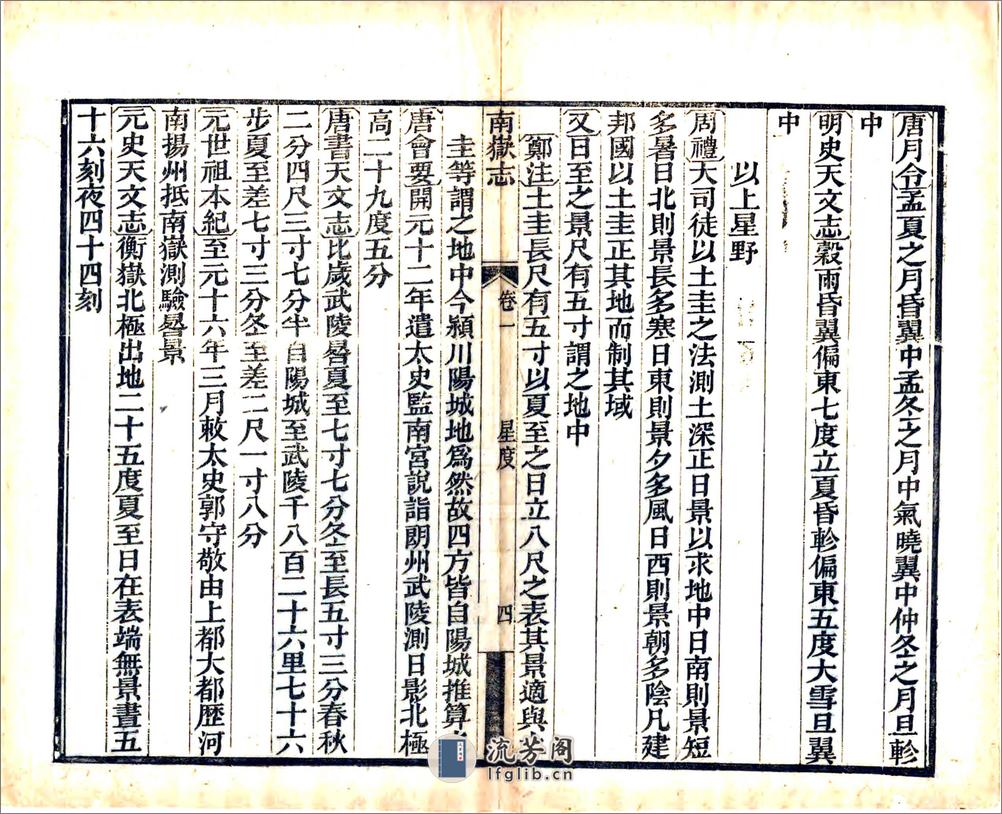 唐月令孟夏之月昏翼中孟冬之月中氣曉翼中仲冬之月旦軫
中
明史天文志穀雨昏翼偏東七度立夏昏軫偏東五度大雪旦翼
中
以上星野
周禮大司徒以土圭之法測土深正日景以求地中日南則景短
多暑日北則景長多寒日東則景夕多風日西則景朝多陰凡建
邦國以土圭正其地而制其域
又日至之景尺有五寸謂之地中
鄭注土圭長尺有五寸以夏至之日立八尺之表其景適與
南嶽志 卷一 星度 四
圭等謂之地中今潁川陽城地爲然故四方皆自陽城推算
唐會要開元十二年遣太史監南宮說詣朗州武陵測日影北極
高二十九度五分
唐書天文志比歲武陵晷夏至七寸七分冬至長五寸三分春秋
二分四尺三寸七分半自陽城至武陵千八百二十六里七十六
步夏至差七寸三分冬至差二尺一寸八分
元世祖本紀至元十六年三月敕太史郭守敬由上都大都歷河
南揚州抵南嶽測驗晷景
元史天文志衡嶽北極出地二十五度夏至日在表端無景晝五
十六刻夜四十四刻
流芳阁
lfglib.cn